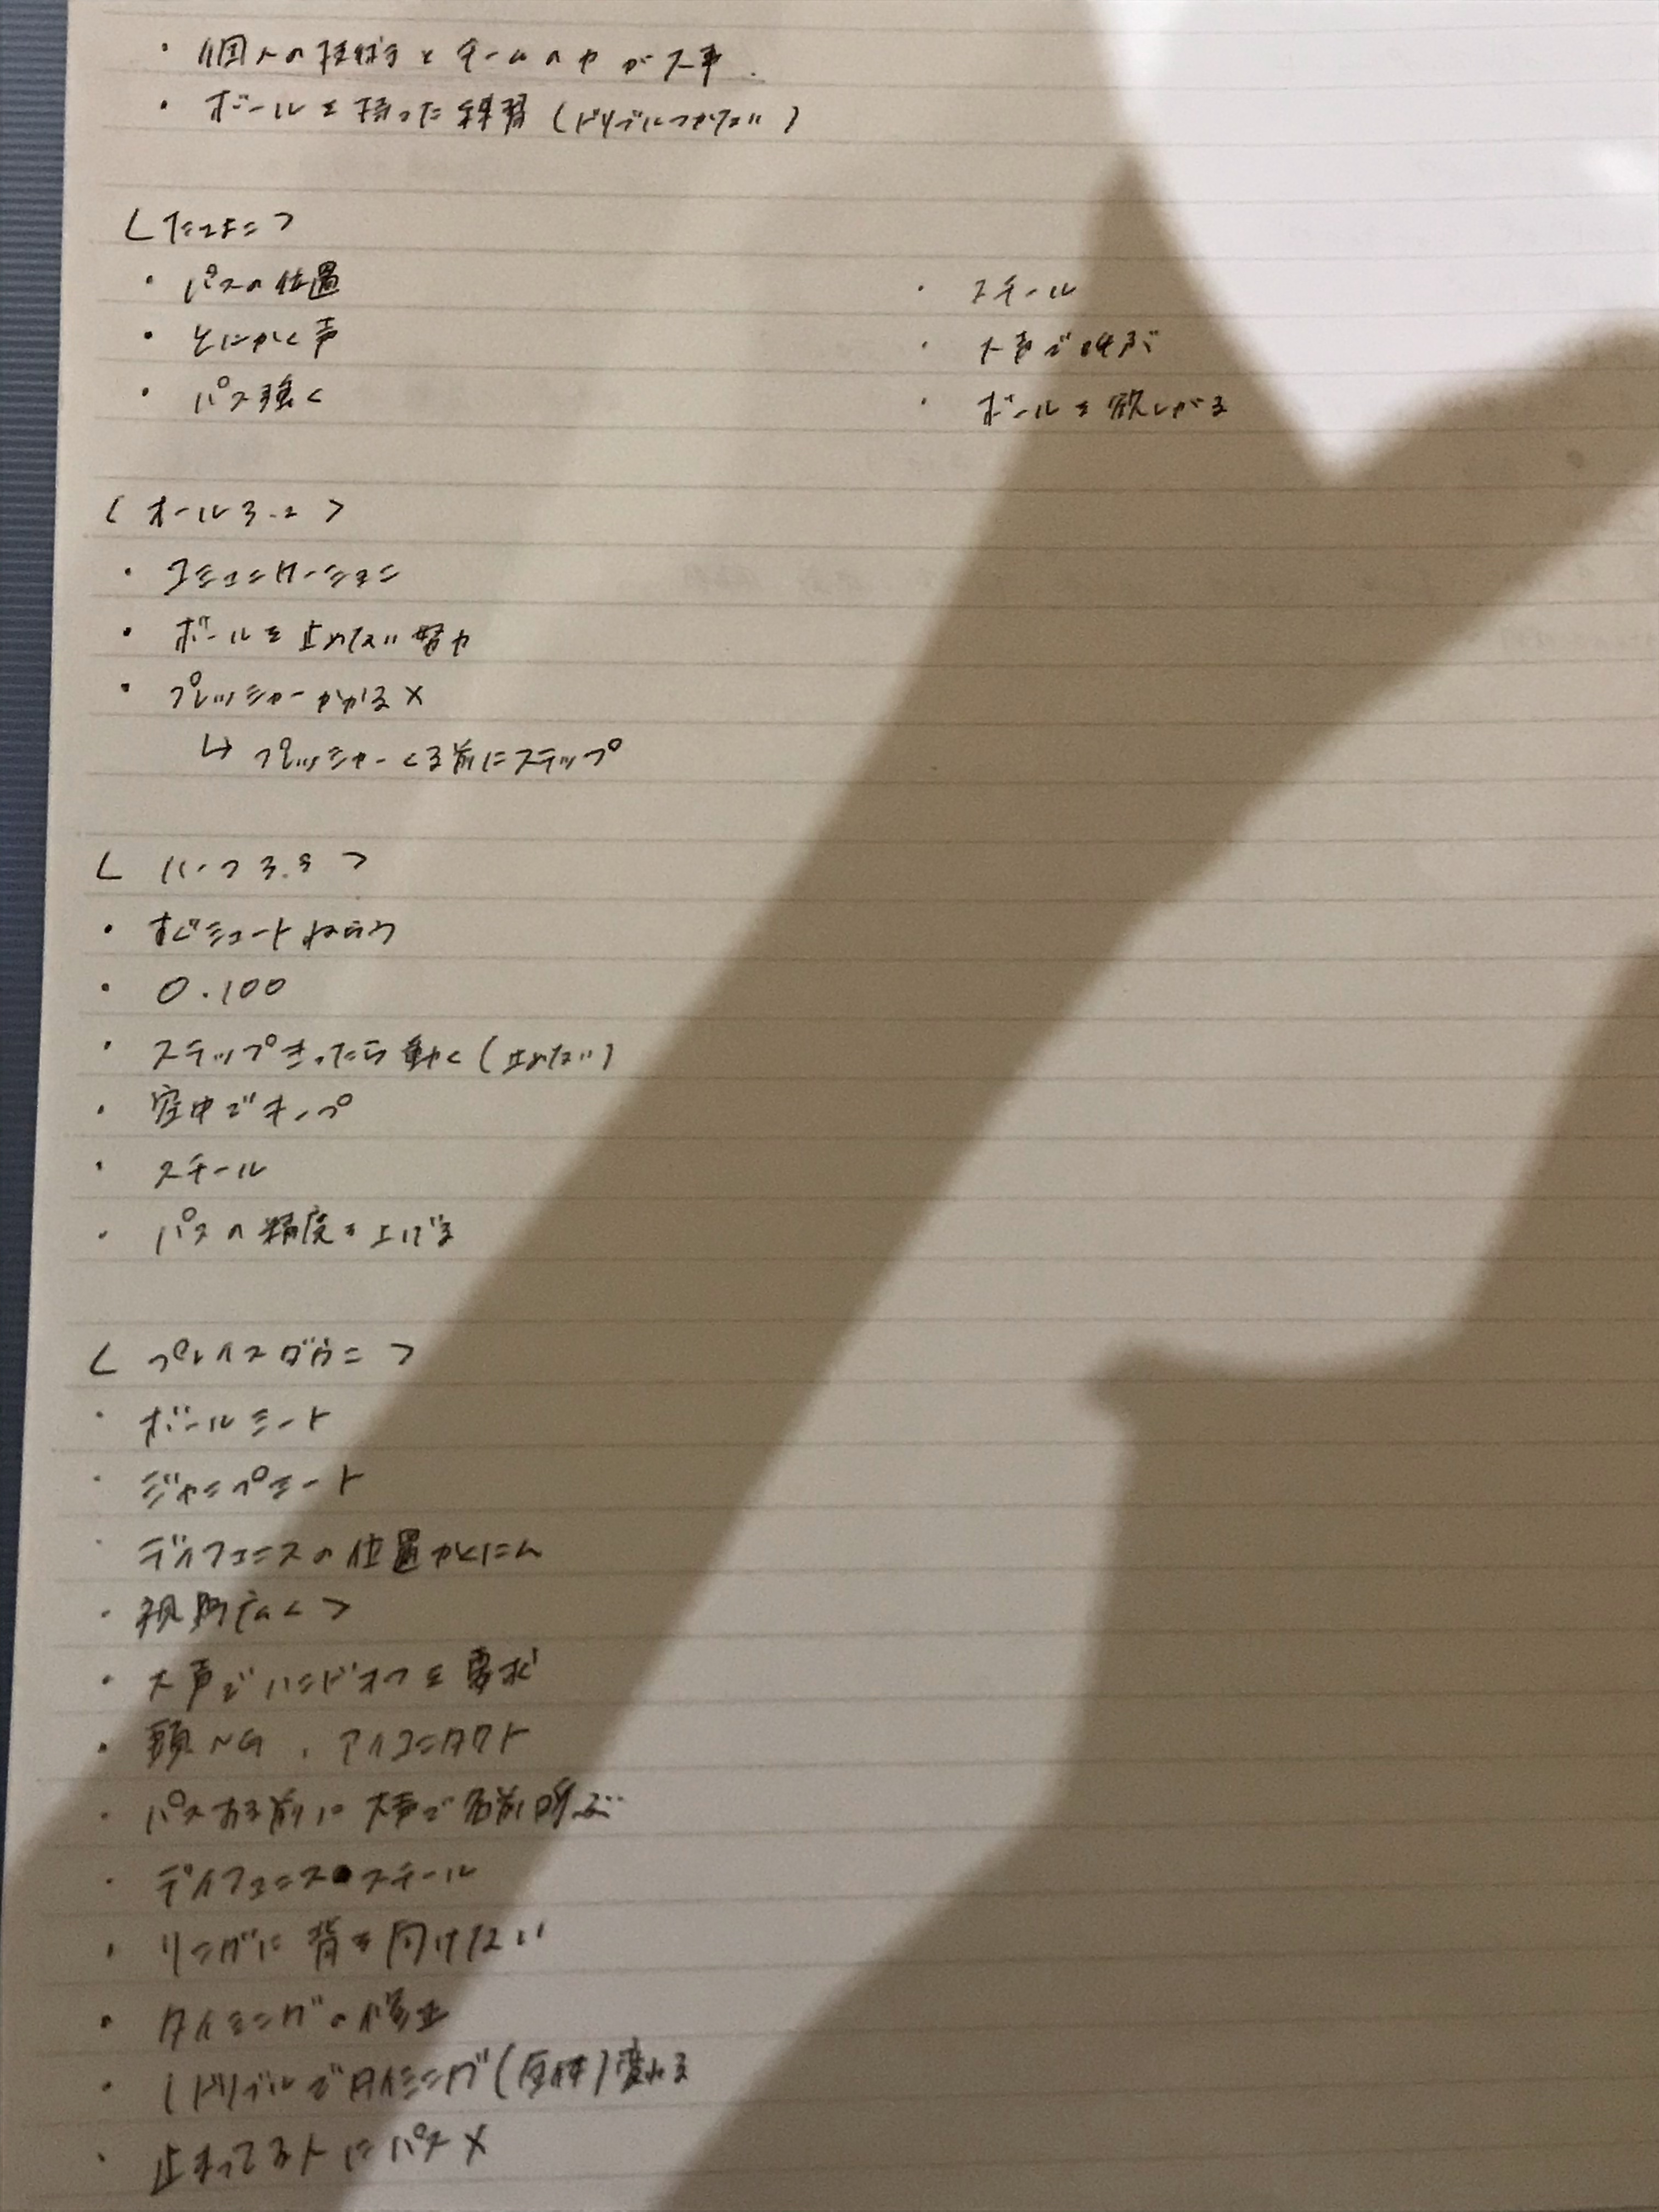 ・個人の技術とチームの力が大事.
・ボールを持った練習(ドリブルつかない)
・パスの位置
・とにかく声
・パス強く
・スチール
・大声で呼ぶ
・ボールを欲しがる
<オール3.2>
・コミュニケーション
・ボールを止めない努力
・プレッシャーかかる×
↳プレッシャーくる前にステップ
<ハーフ3.3>
・すぐシュートねらう
・0.100
・ステップきったら動く(止めない)
・空中でキープ
・スチール
・パスの精度を上げる
<プレイスダウン>
・ボールミート
・ジャンプミート
・ディフェンスの位置かくにん
・視野広く
・大声でハンドオフを要求
・頭NG、アイコンタクト
・パスする前に大声で名前呼ぶ
・ディフェンススチール
・リングに背を向けない
・タイミングの修正
・1ドリブルでタイミング(全体)変わる
・止まってる人にパス×